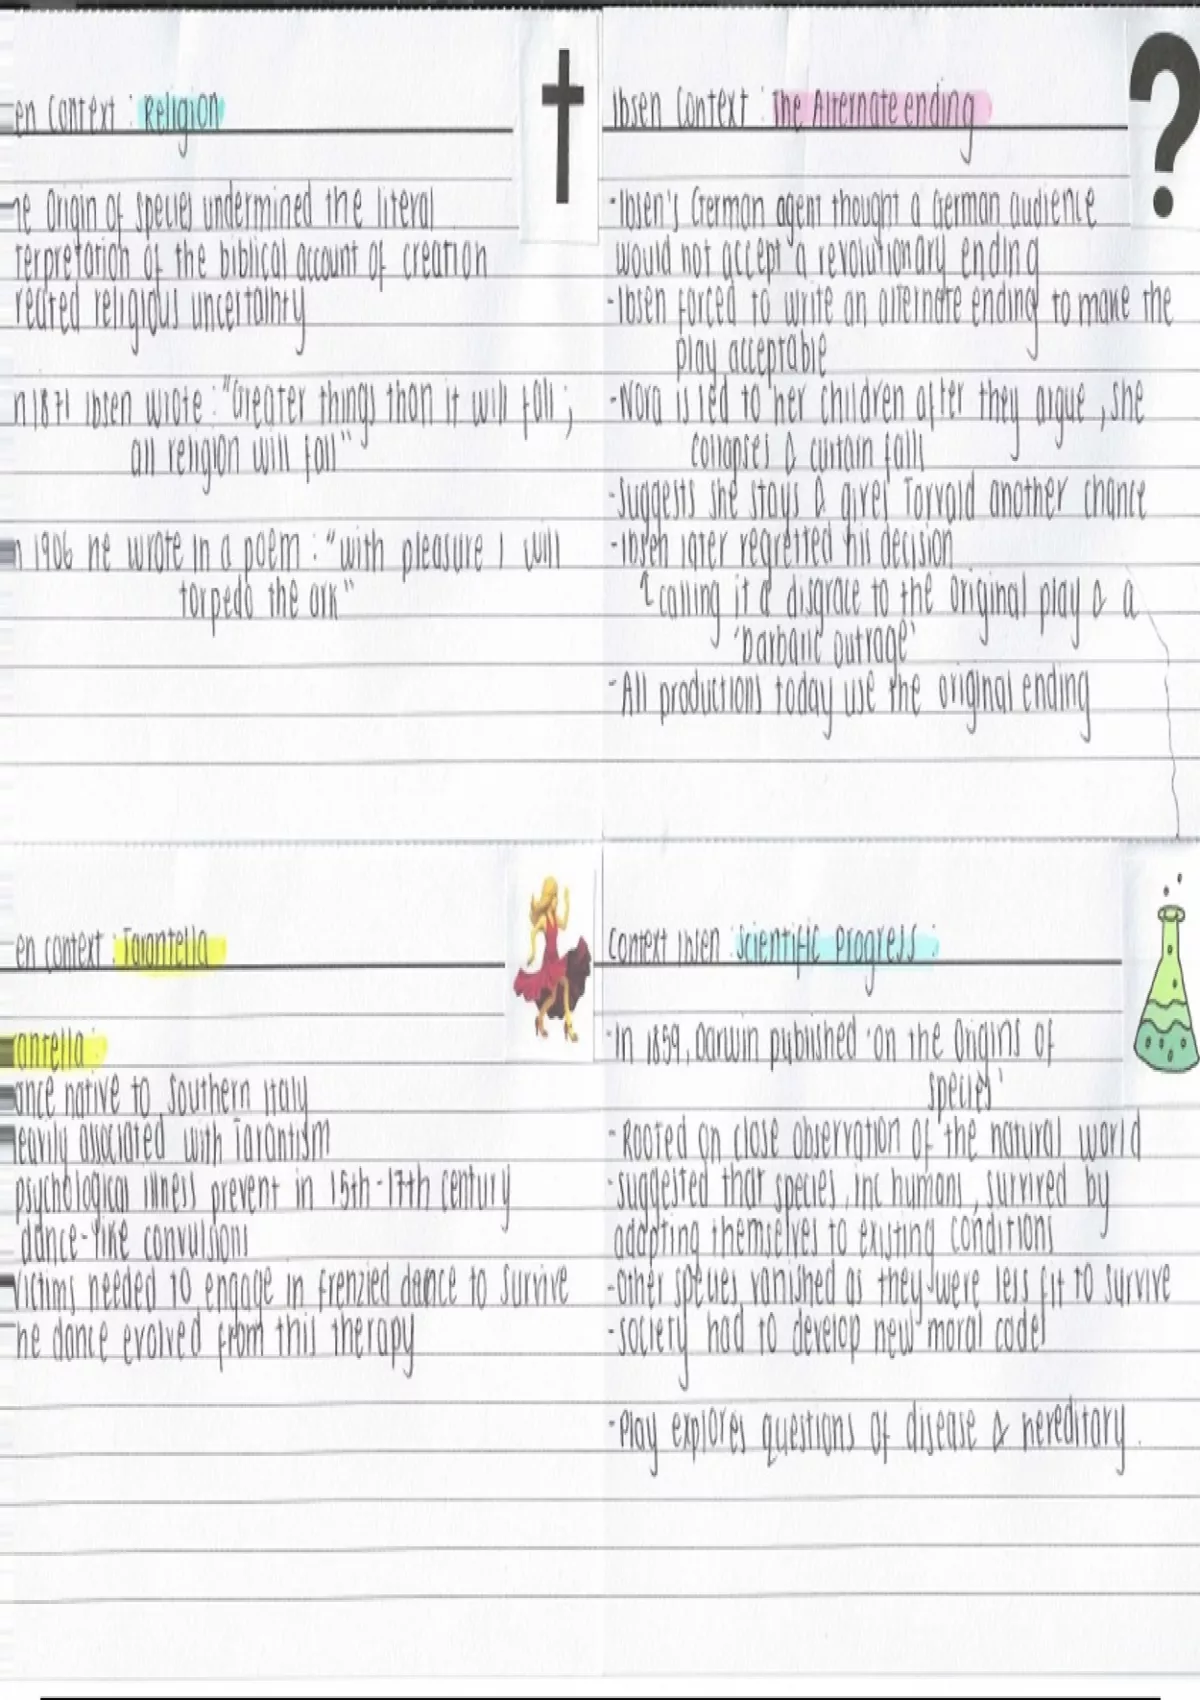 en Context : Religion
he Origin of Species undermined the literal
terpretation of the biblical account of creation
reated religious uncertainty
n 1871 Ibsen wrote : "Greater things than it will fall ;
all religion will fall"
n 1906 he wrote in a poem : "with pleasure I will
torpedo the ark"
Ibsen Context : The Alternate ending
-Ibsen's German agent thought a German audience
would not accept a revolutionary ending
-Ibsen forced to write an alternate ending to make the
play acceptable
-Nora is led to her children after they argue, she
collapses & curtain falls
-Suggests she stays & gives Torvald another chance
-Ibsen later regretted his decision
calling it a disgrace to the original play & a
'barbaric outrage'
-All productions today use the original ending
en context : Tarantella
antella :
ance native to southern Italy
eavily associated with Tarantism
psychological illness prevent in 15th-17th century
dance-like convulsions
Victims needed to engage in frenzied dance to survive
he dance evolved from this therapy
Context Ibsen : Scientific Progress :
-In 1859, Darwin published 'on the Origins of
species'
-Rooted on close observation of the natural world
-suggested that species, inc humans, survived by
adapting themselves to existing conditions
-Other species vanished as they were less fit to survive
-society had to develop new moral codes
-Play explores questions of disease & hereditary.